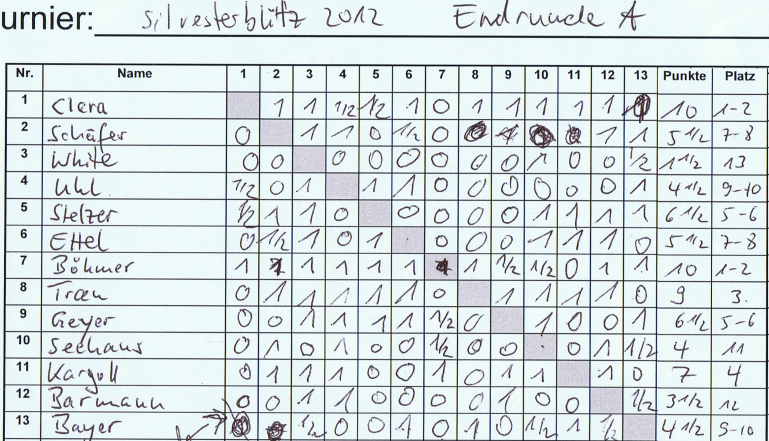 urnier: Silvesterblitz 2012 Endrunde A
Nr. Name 1 2 3 4 5 6 7 8 9 10 11 12 13 Punkte Platz
1 Clera 1 1 1/2 1/2 1 0 1 1 1 1 1 1 10 1-2
2 Schäfer 0 1 1 0 1/2 0 0 1 0 0 1 1 5 1/2 7-8
3 White 0 0 0 0 0 0 0 0 1 0 0 1/2 1 1/2 13
4 Uhl 1/2 0 1 1 1 0 0 0 0 0 0 1 4 1/2 9-10
5 Stelzer 1/2 1 1 0 0 0 0 0 1 1 1 1 6 1/2 5-6
6 Ettel 0 1/2 1 0 1 0 0 0 1 1 1 0 5 1/2 7-8
7 Böhmer 1 1 1 1 1 1 1 1/2 1/2 0 1 1 10 1-2
8 Tran 0 1 1 1 1 1 0 1 1 1 1 0 9 3.
9 Geyer 0 0 1 1 1 1 1/2 0 1 0 0 1 6 1/2 5-6
10 Seehaus 0 1 0 1 0 0 1/2 0 0 0 1 1/2 4 11
11 Kargoll 0 1 1 1 0 0 1 0 1 1 1 0 7 4
12 Barmann 0 0 1 1 0 0 0 0 1 0 0 1/2 3 1/2 12
13 Bayer 0 0 1/2 0 0 1 0 1 0 1/2 1 1/2 4 1/2 9-10